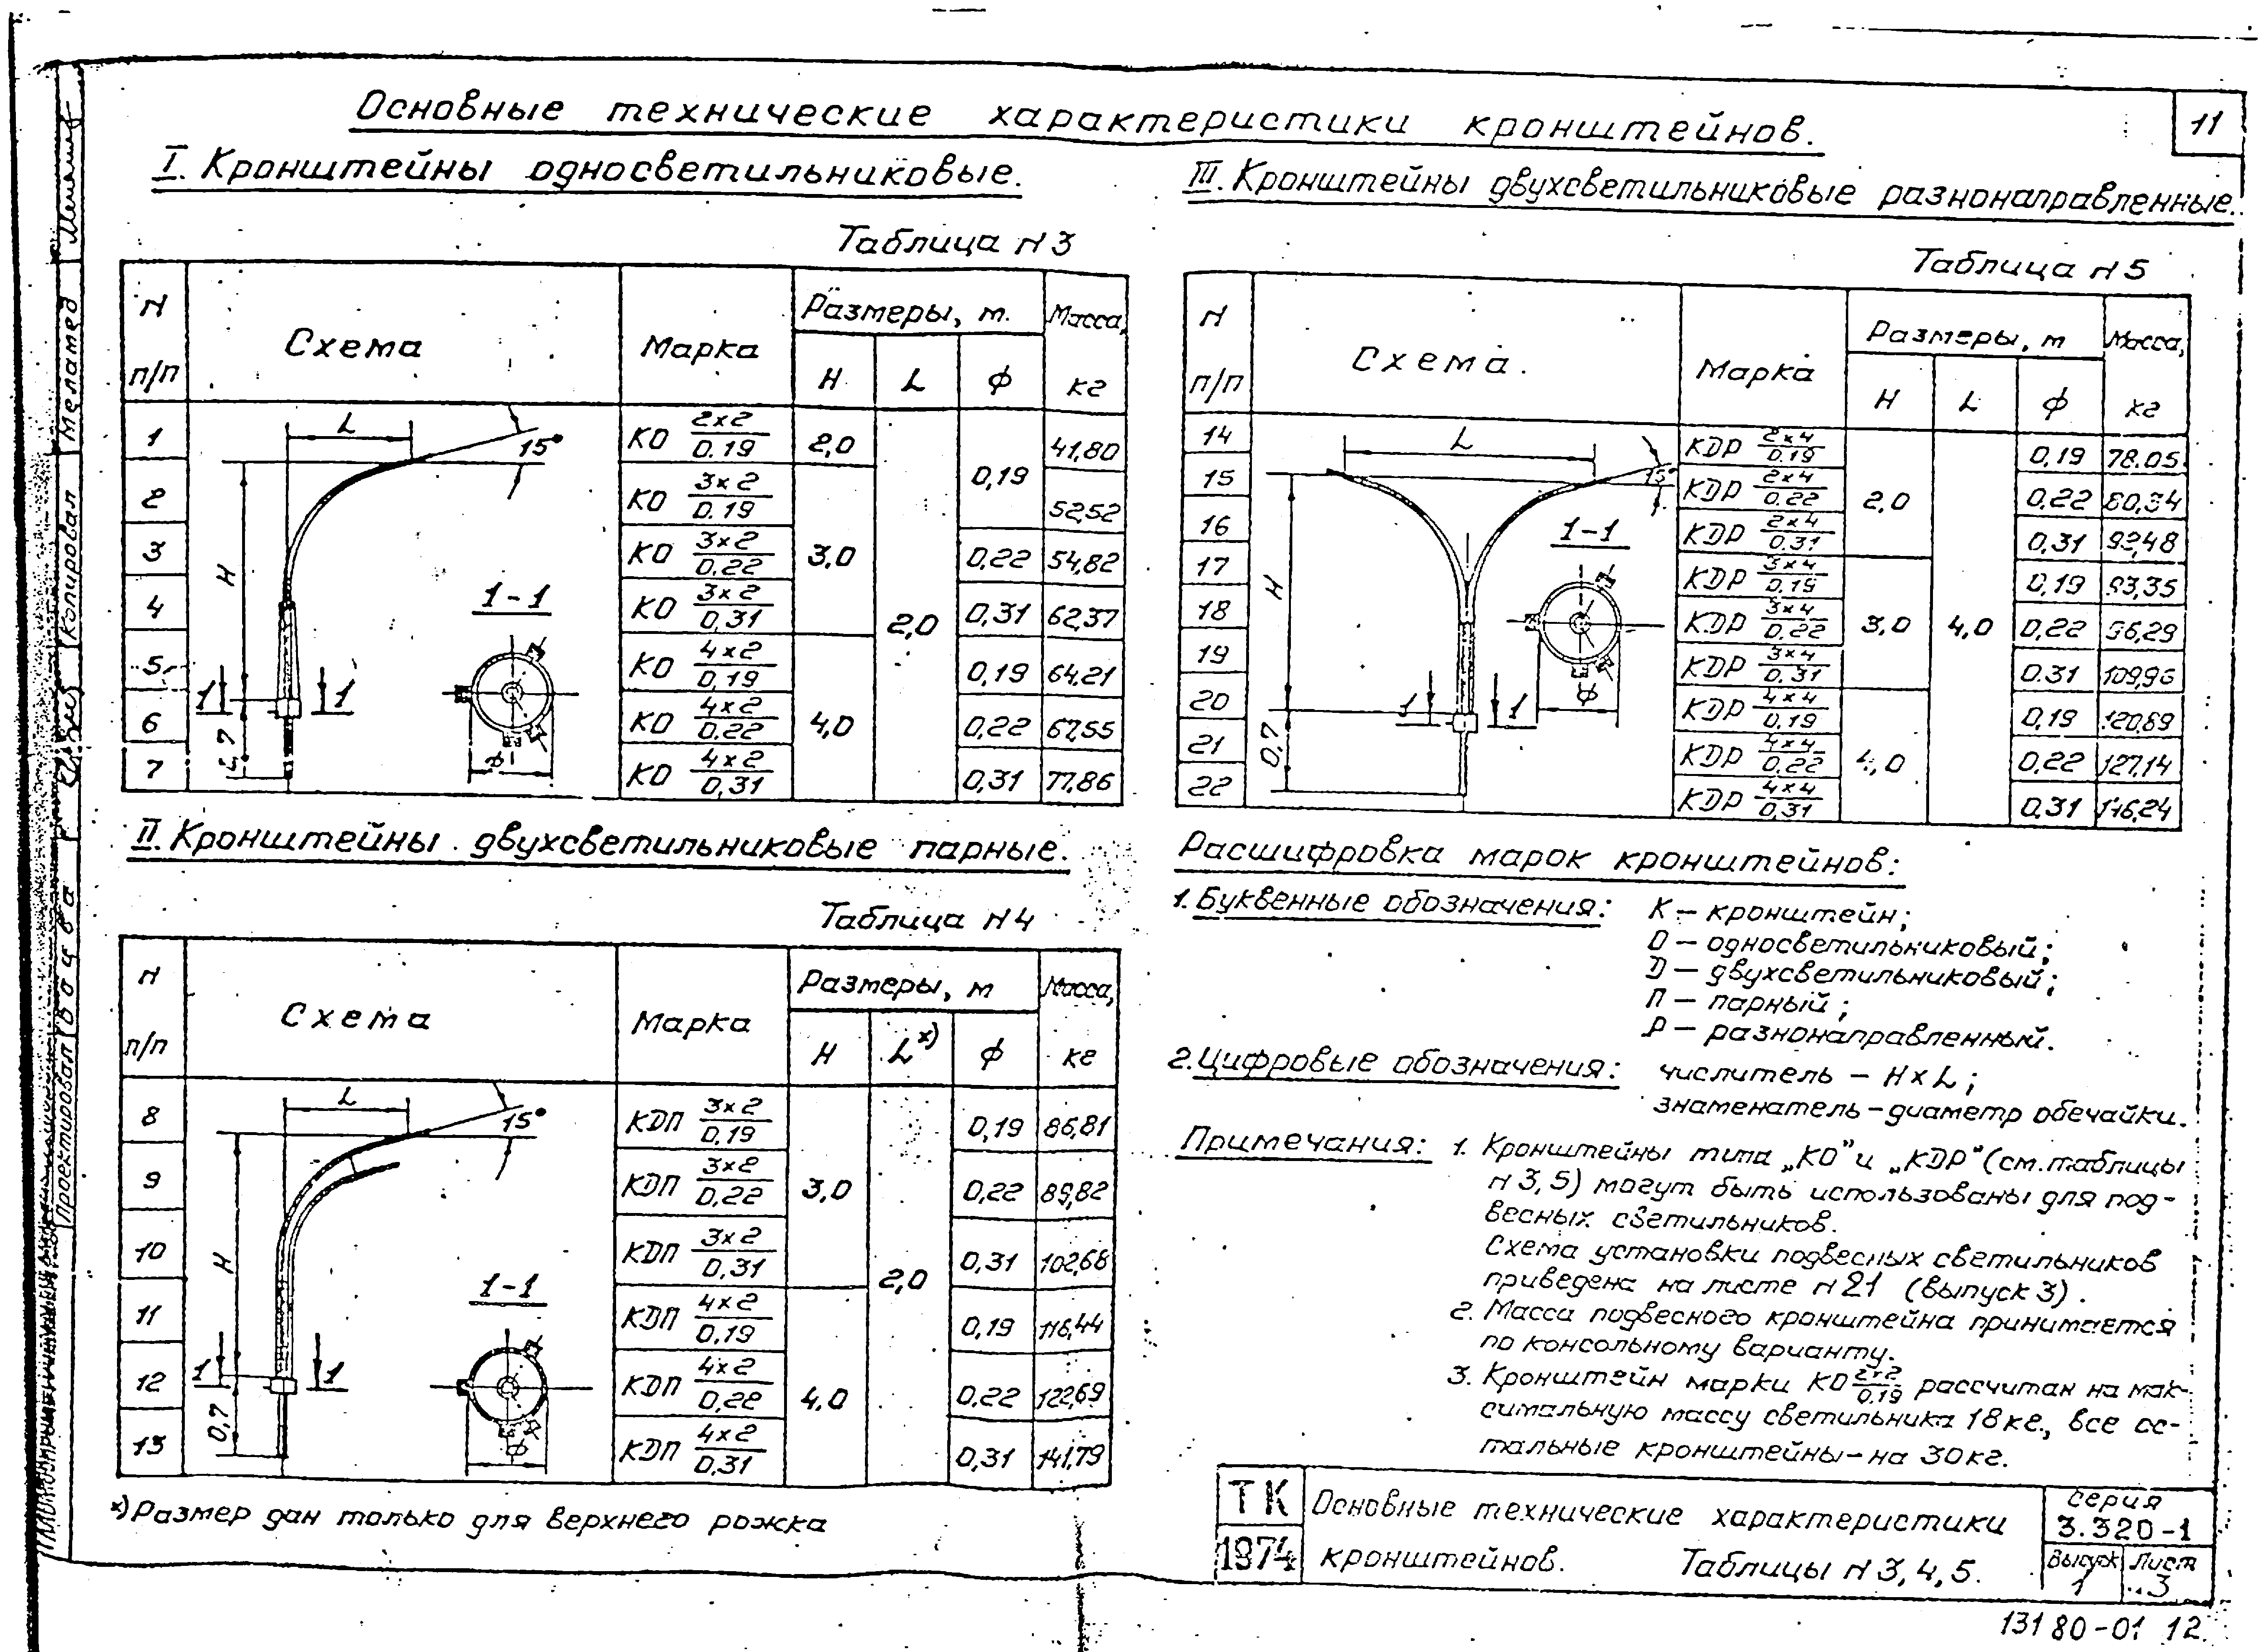 11
Основные технические характеристики кронштейнов.
I. Кронштейны односветильниковые.
Таблица N 3
N п/п Схема Марка Размеры, м. Масса, кг
H L ф
1 КО 2х2/0.19 2,0 2,0 0,19 41,80
2 КО 3х2/0.19 3,0 52,52
3 КО 3х2/0.22 0,22 54,82
4 КО 3х2/0,31 0,31 62,37
5 КО 4х2/0,19 4,0 0,19 64,21
6 КО 4х2/0.22 0,22 67,55
7 КО 4х2/0,31 0,31 77,86
L
15°
H
1-1
1 1
ф
II. Кронштейны двухсветильниковые парные.
Таблица N 4
N п/п Схема Марка Размеры, м Масса, кг
H L х) ф
8 КДП 3х2/0,19 3,0 2,0 0,19 86,81
9 КДП 3х2/0,22 0,22 89,82
10 КДП 3х2/0,31 0,31 102,68
11 КДП 4х2/0,19 4,0 0,19 116,44
12 КДП 4х2/0,22 0,22 122,69
13 КДП 4х2/0,31 0,31 141,79
L
15°
H
1-1
1 1
0,7
ф
х) Размер дан только для верхнего рожка
III. Кронштейны двухсветильниковые разнонаправленные.
Таблица N 5
N п/п Схема. Марка Размеры, м Масса, кг
H L ф
14 КДР 2х4/0.19 2,0 4,0 0,19 78.05
15 КДР 2х4/0.22 0,22 80,34
16 КДР 2х4/0.31 0,31 92,48
17 КДР 3х4/0.19 3,0 0,19 93,35
18 КДР 3х4/0,22 0,22 96,29
19 КДР 3х4/0.31 0.31 109,96
20 КДР 4х4/0,19 4,0 0,19 120,89
21 КДР 4х4/0,22 0,22 127,14
22 КДР 4х4/0,31 0,31 146,24
L
15°
H
1-1
1 1
0,7
ф
Расшифровка марок кронштейнов:
1. Буквенные обозначения: К – кронштейн;
О – односветильниковый;
Д – двухсветильниковый;
П – парный;
Р – разнонаправленный.
2. Цифровые обозначения: числитель – HxL;
знаменатель – диаметр обечайки.
Примечания: 1. Кронштейны типа „КО” и „КДР” (см. таблицы
N 3, 5) могут быть использованы для под-
весных светильников.
Схема установки подвесных светильников
приведена на листе N 21 (выпуск 3).
2. Масса подвесного кронштейна принимается
по консольному варианту.
3. Кронштейн марки КО 2х2/0.19 рассчитан на мак-
симальную массу светильника 18 кг., все ос-
тальные кронштейны – на 30 кг.
ТК 1974
Основные технические характеристики
кронштейнов. Таблицы N 3, 4, 5.
серия
3.320-1
Выпуск Лист
1 3
13180-01 12
Проектировал
Копировал Меламед